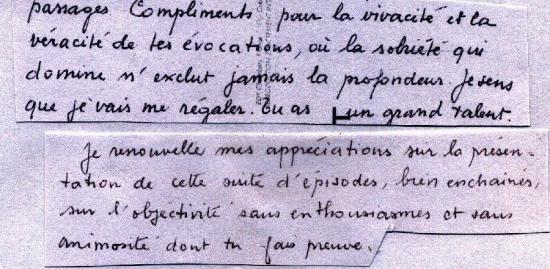 passages. Compliments pour la vivacité et la
véracité de tes évocations, où la sobriété qui
domine n'exclut jamais la profondeur. Je sens
que je vais me régaler. Tu as un grand talent.
Je renouvelle mes appréciations sur la présen-
tation de cette suite d'épisodes, bien enchaînés,
sur l'objectivité sans enthousiasmes et sans
animosité dont tu fais preuve.